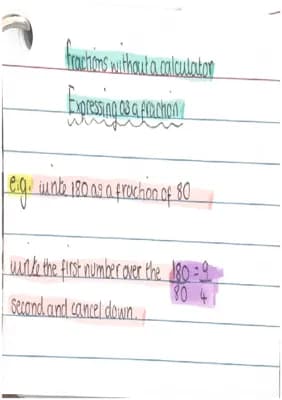 fractions without a calculator
Expressing as a fraction
e.g. write 180 as a fraction of 80
write the first number over the 180 = 9
second and cancel down. 80 4